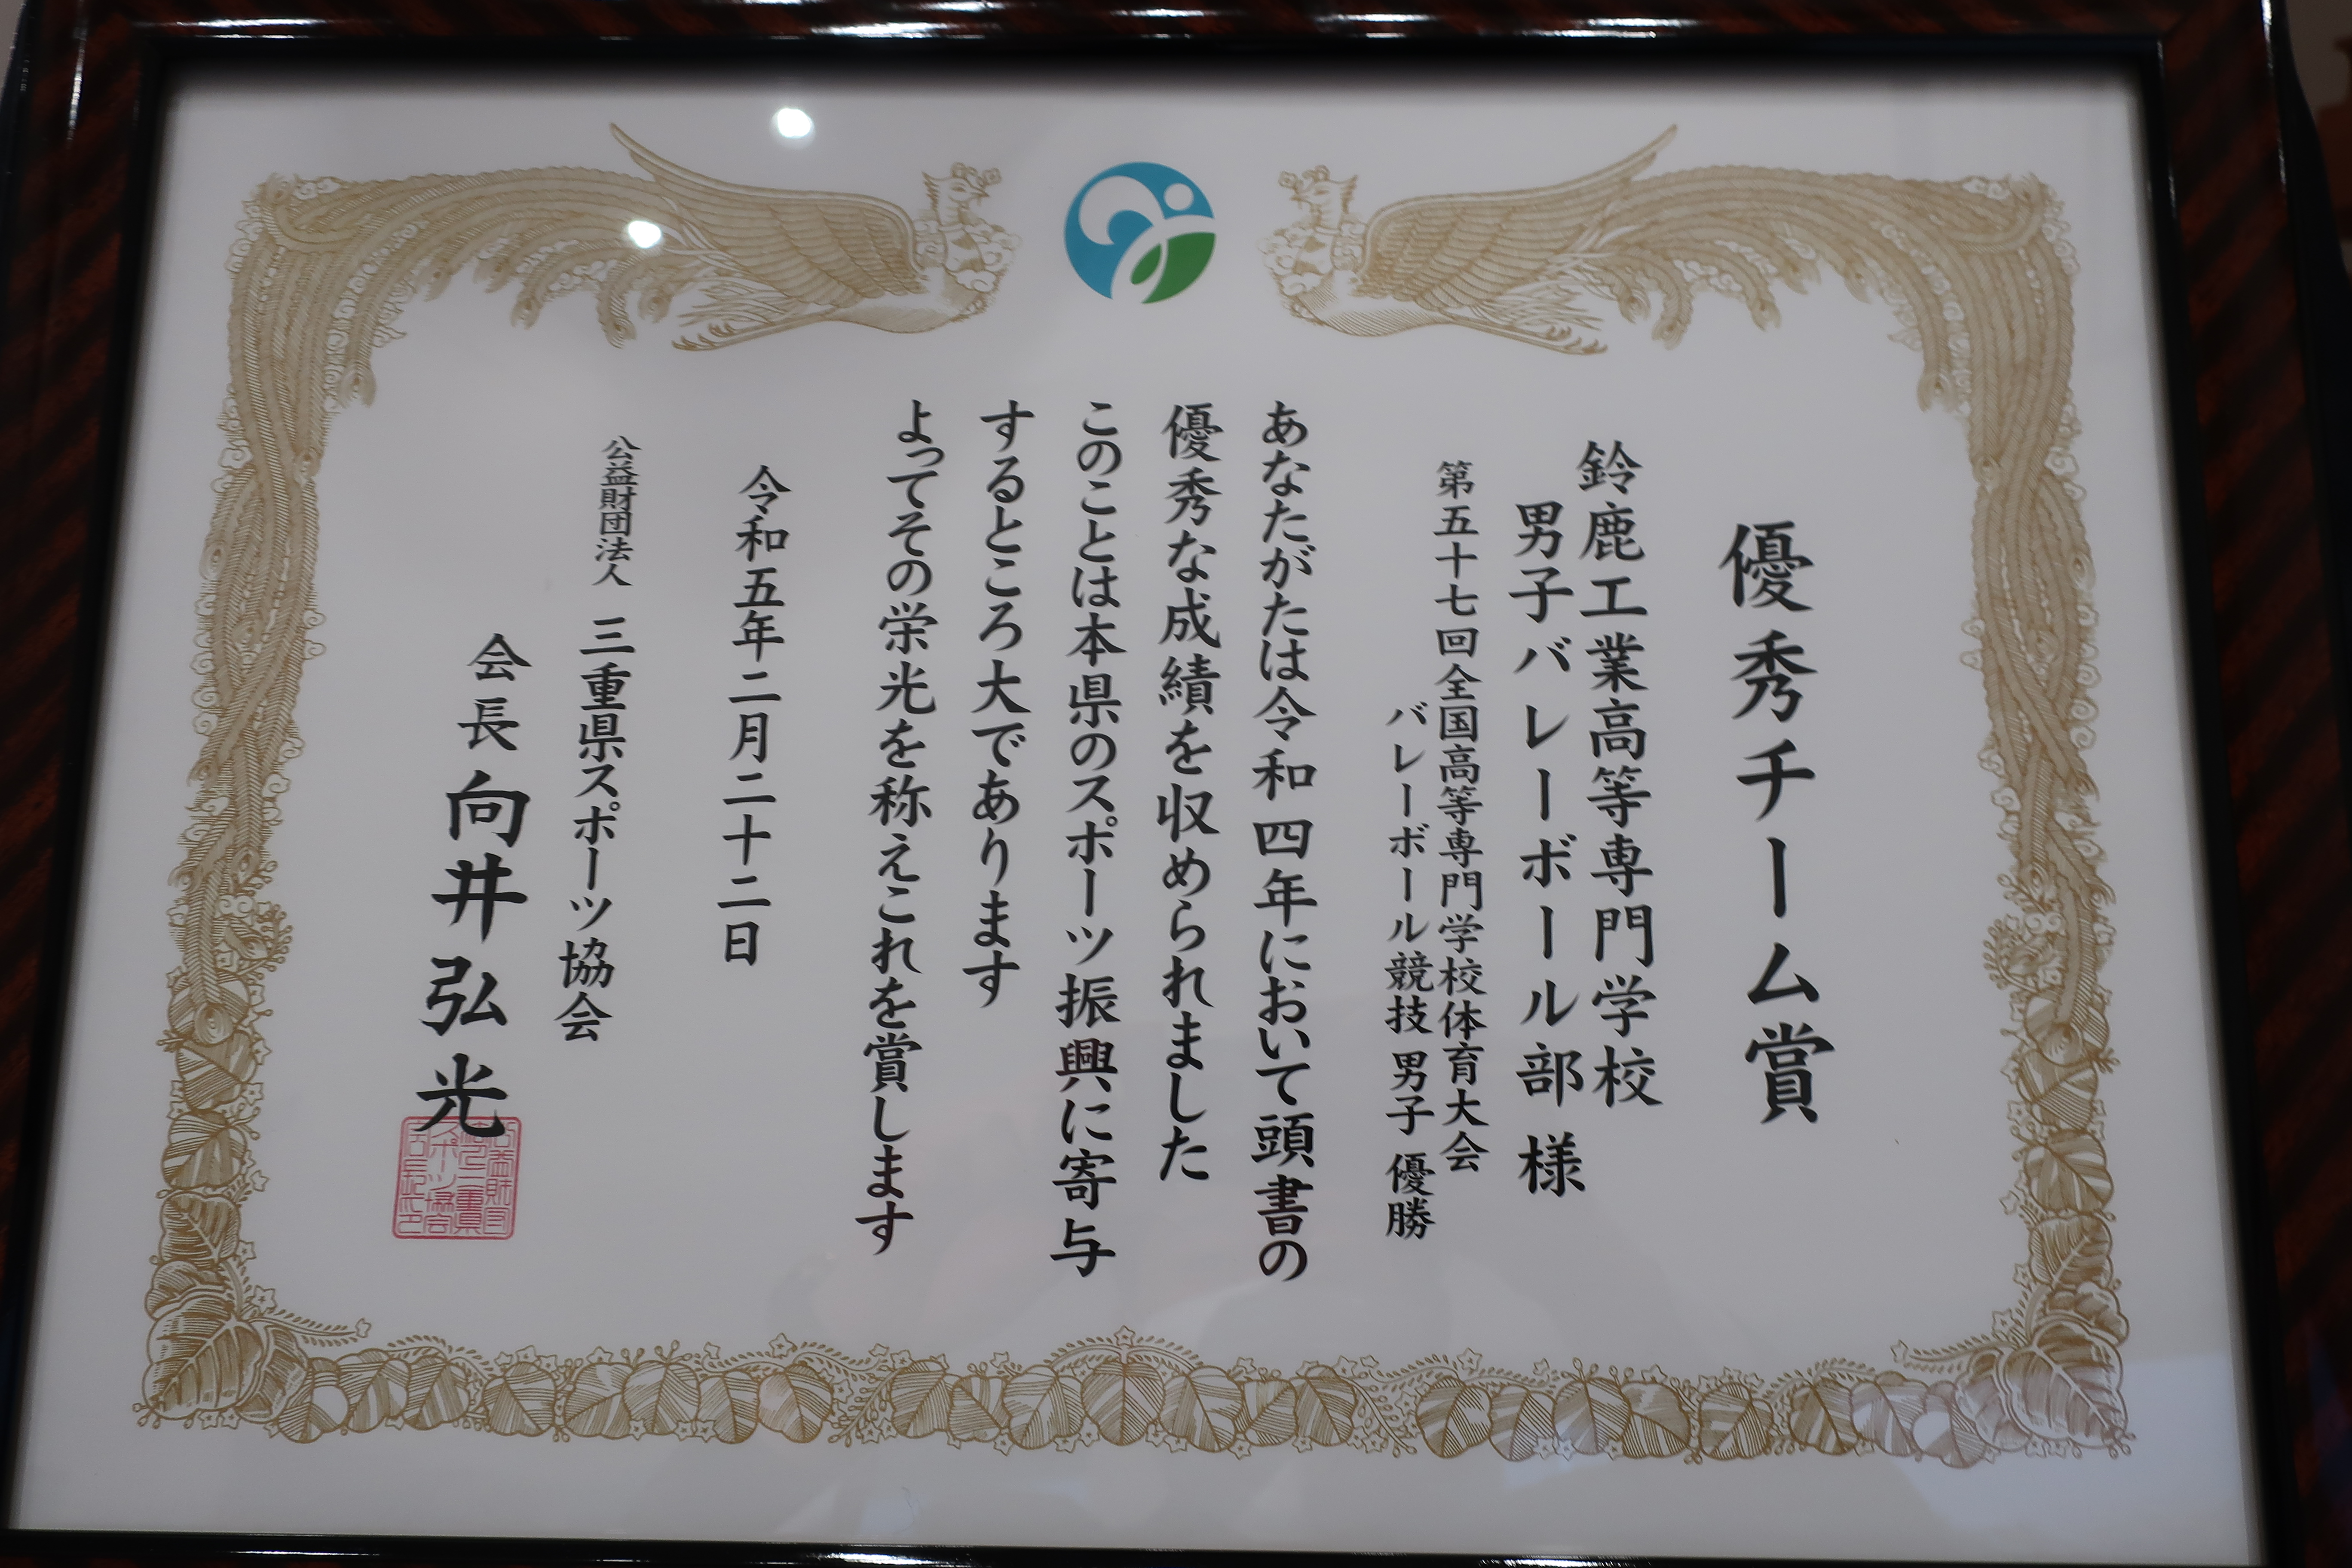 優秀チーム賞
鈴鹿工業高等専門学校
男子バレーボール部 様
第五十七回全国高等専門学校体育大会
バレーボール競技 男子 優勝
あなたがたは令和四年において頭書の
優秀な成績を収められました
このことは本県のスポーツ振興に寄与
するところ大であります
よってその栄光を称えこれを賞します
令和五年二月二十二日
公益財団法人 三重県スポーツ協会
会長 向井弘光